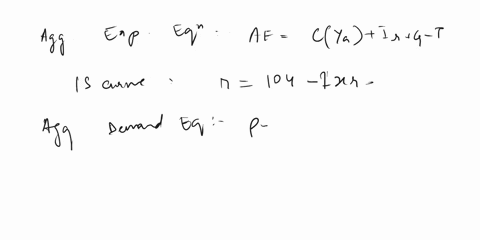 Agg Exp. Eqⁿ. AE = C(Ya) + Ir + G - T
IS curve : n = 104 - I x r -
Agg Demand Eq :- P-